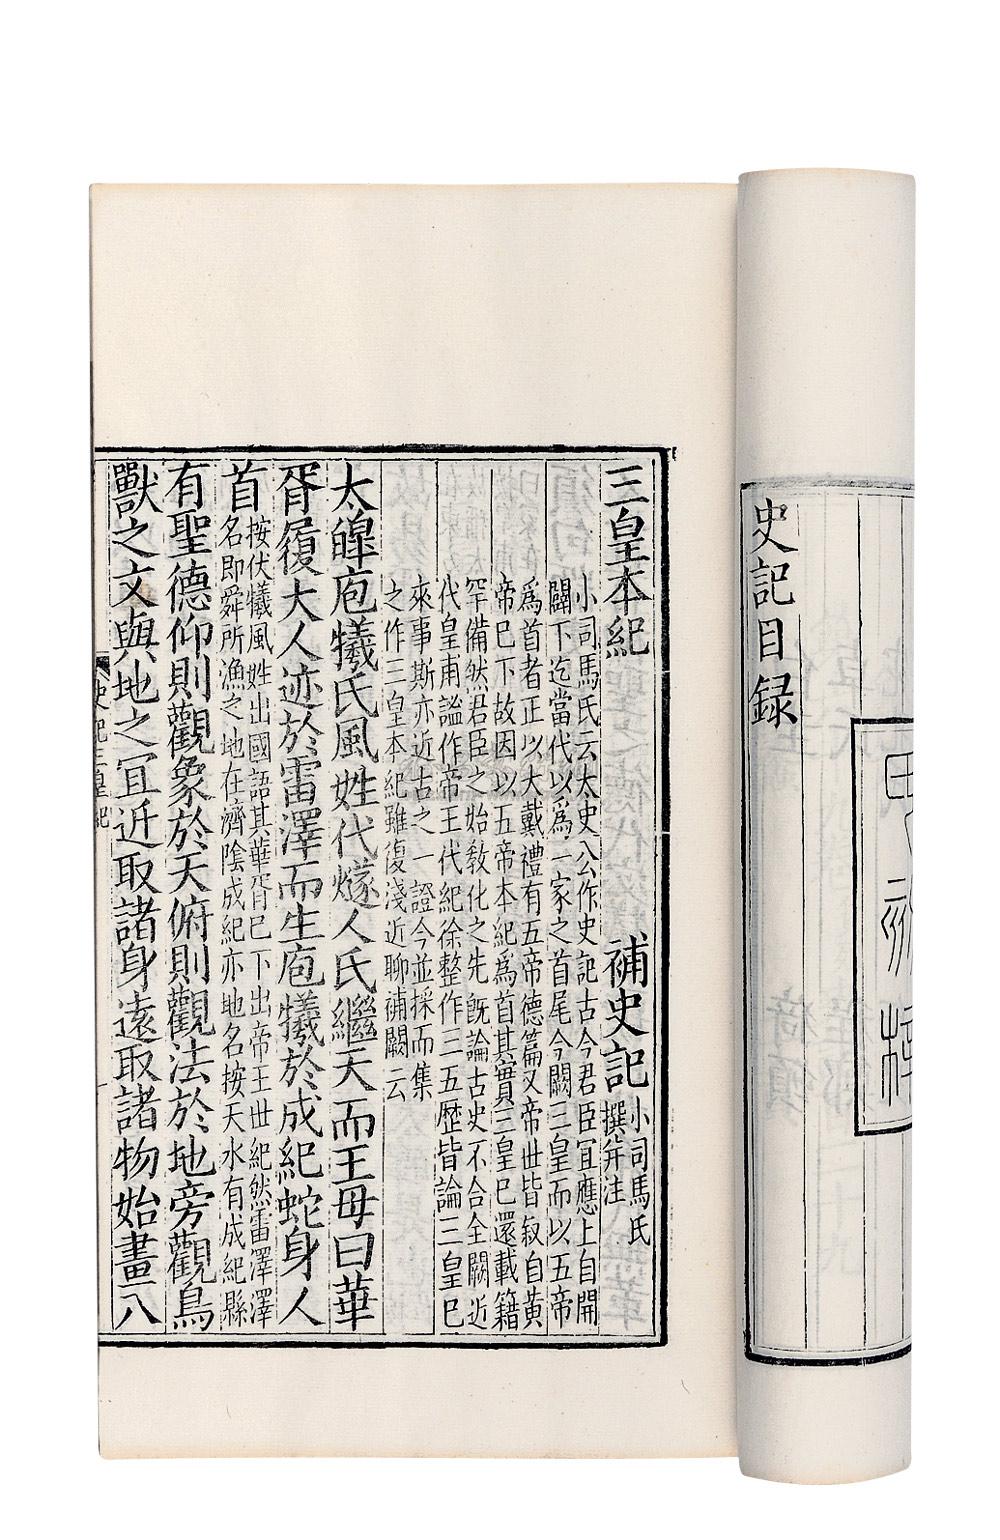 史記目録
三皇本紀 補史記 小司馬氏
撰并注
小司馬氏云太史公作史記古今君臣宜應上自開
闢下迄當代以爲一家之首尾今闕三皇而以五帝
爲首者正以大戴禮有五帝德篇又帝世皆叙自黄
帝已下故因以五帝本紀爲首其實三皇已還載籍
罕備然君臣之始敎化之先旣論古史不合全闕近
代皇甫謐作帝王代紀徐整作三五歴皆論三皇已
來事斯亦近古之一證今並採而集
之作三皇本紀雖復淺近聊補闕云
太皥庖犧氏風姓代燧人氏繼天而王母曰華
胥履大人迹於雷澤而生庖犧於成紀蛇身人
首
按伏犧風姓出國語其華胥已下出帝王世紀然雷澤澤
名即舜所漁之地在濟陰成紀亦地名按天水有成紀縣
有聖德仰則觀象於天俯則觀法於地旁觀鳥
獸之文與地之宜近取諸身遠取諸物始畫八
史記三皇紀